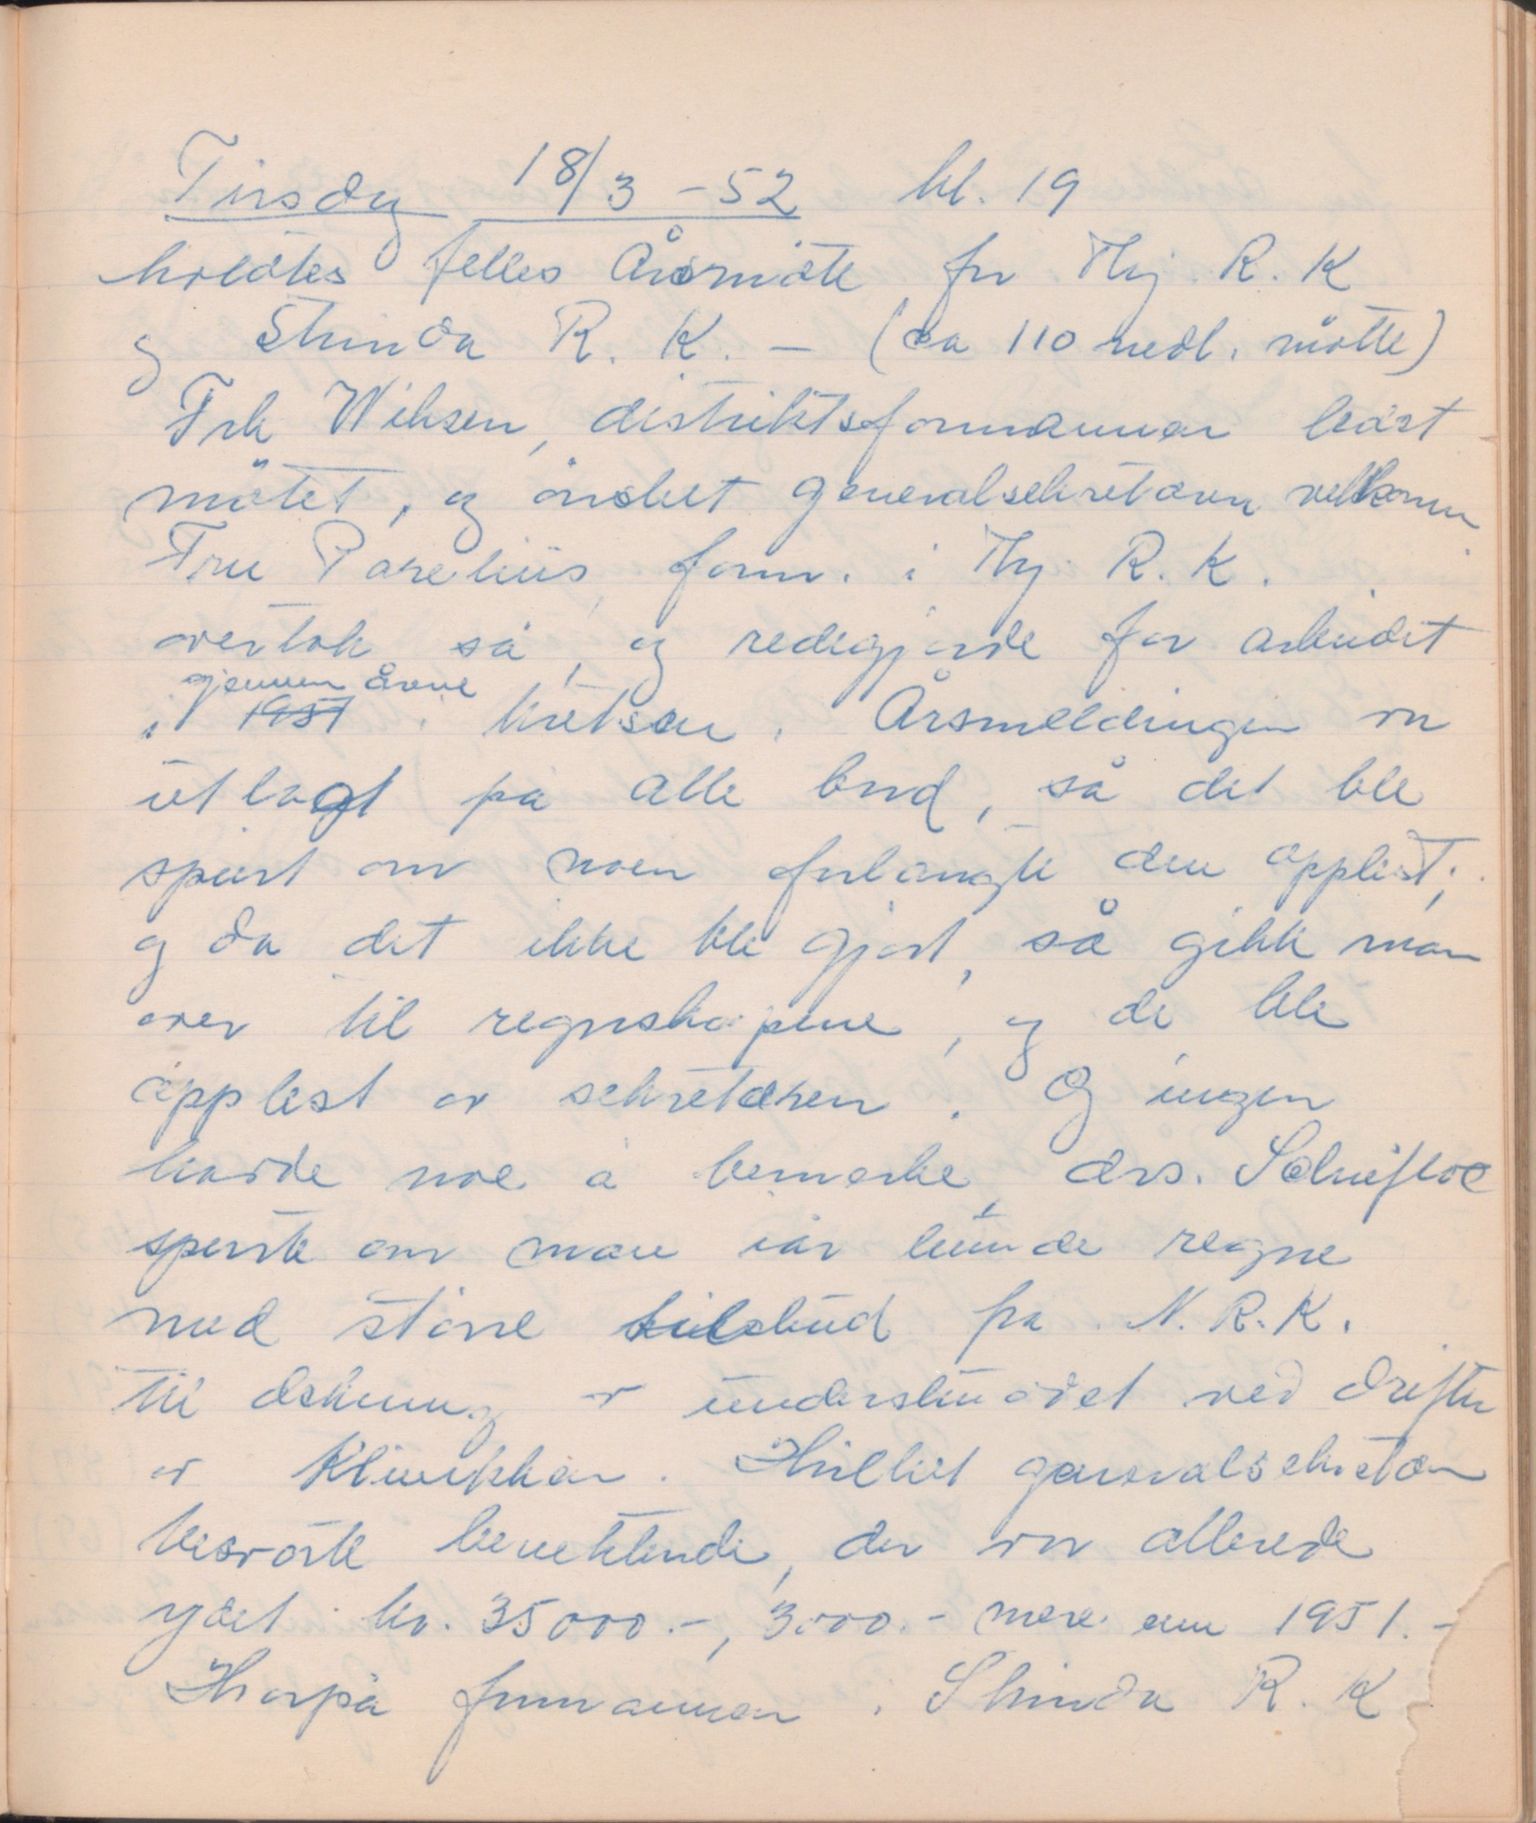 Tirsdag 18/3 -52 kl. 19
holdtes felles Årsmöte for Thj. R. K
og Strinda R. K. - (ca 110 medl. mötte)
Frk Wiksen, distriktsformannen ledet
mötet, og önsket generalsekretæren velkommen
Fru Parelius, form. i Thj. R. K.
overtok så, og redegjorde for arbeidet
gjennem årene
i 1951 i kretsen. Årsmeldingen var
utlagt på alle bord, så det ble
spurt om noen forlangte den opplest;
og da det ikke ble gjort, så gikk man
over til regnskapene, og de ble
opplest av sekretæren. Og ingen
hadde noe å bemerke, drs.
spurte om man iår kunde regne
med större tilskud fra N. R. K.
til dekning av underskuddet ved driften
av Klinikken. Hvilket generalsekretæren
besvarte bekreftende, der var allerede
ydet kr. 35000.-, 3000.- mere enn 1951.-
Hvorpå formannen i Strinda R. K